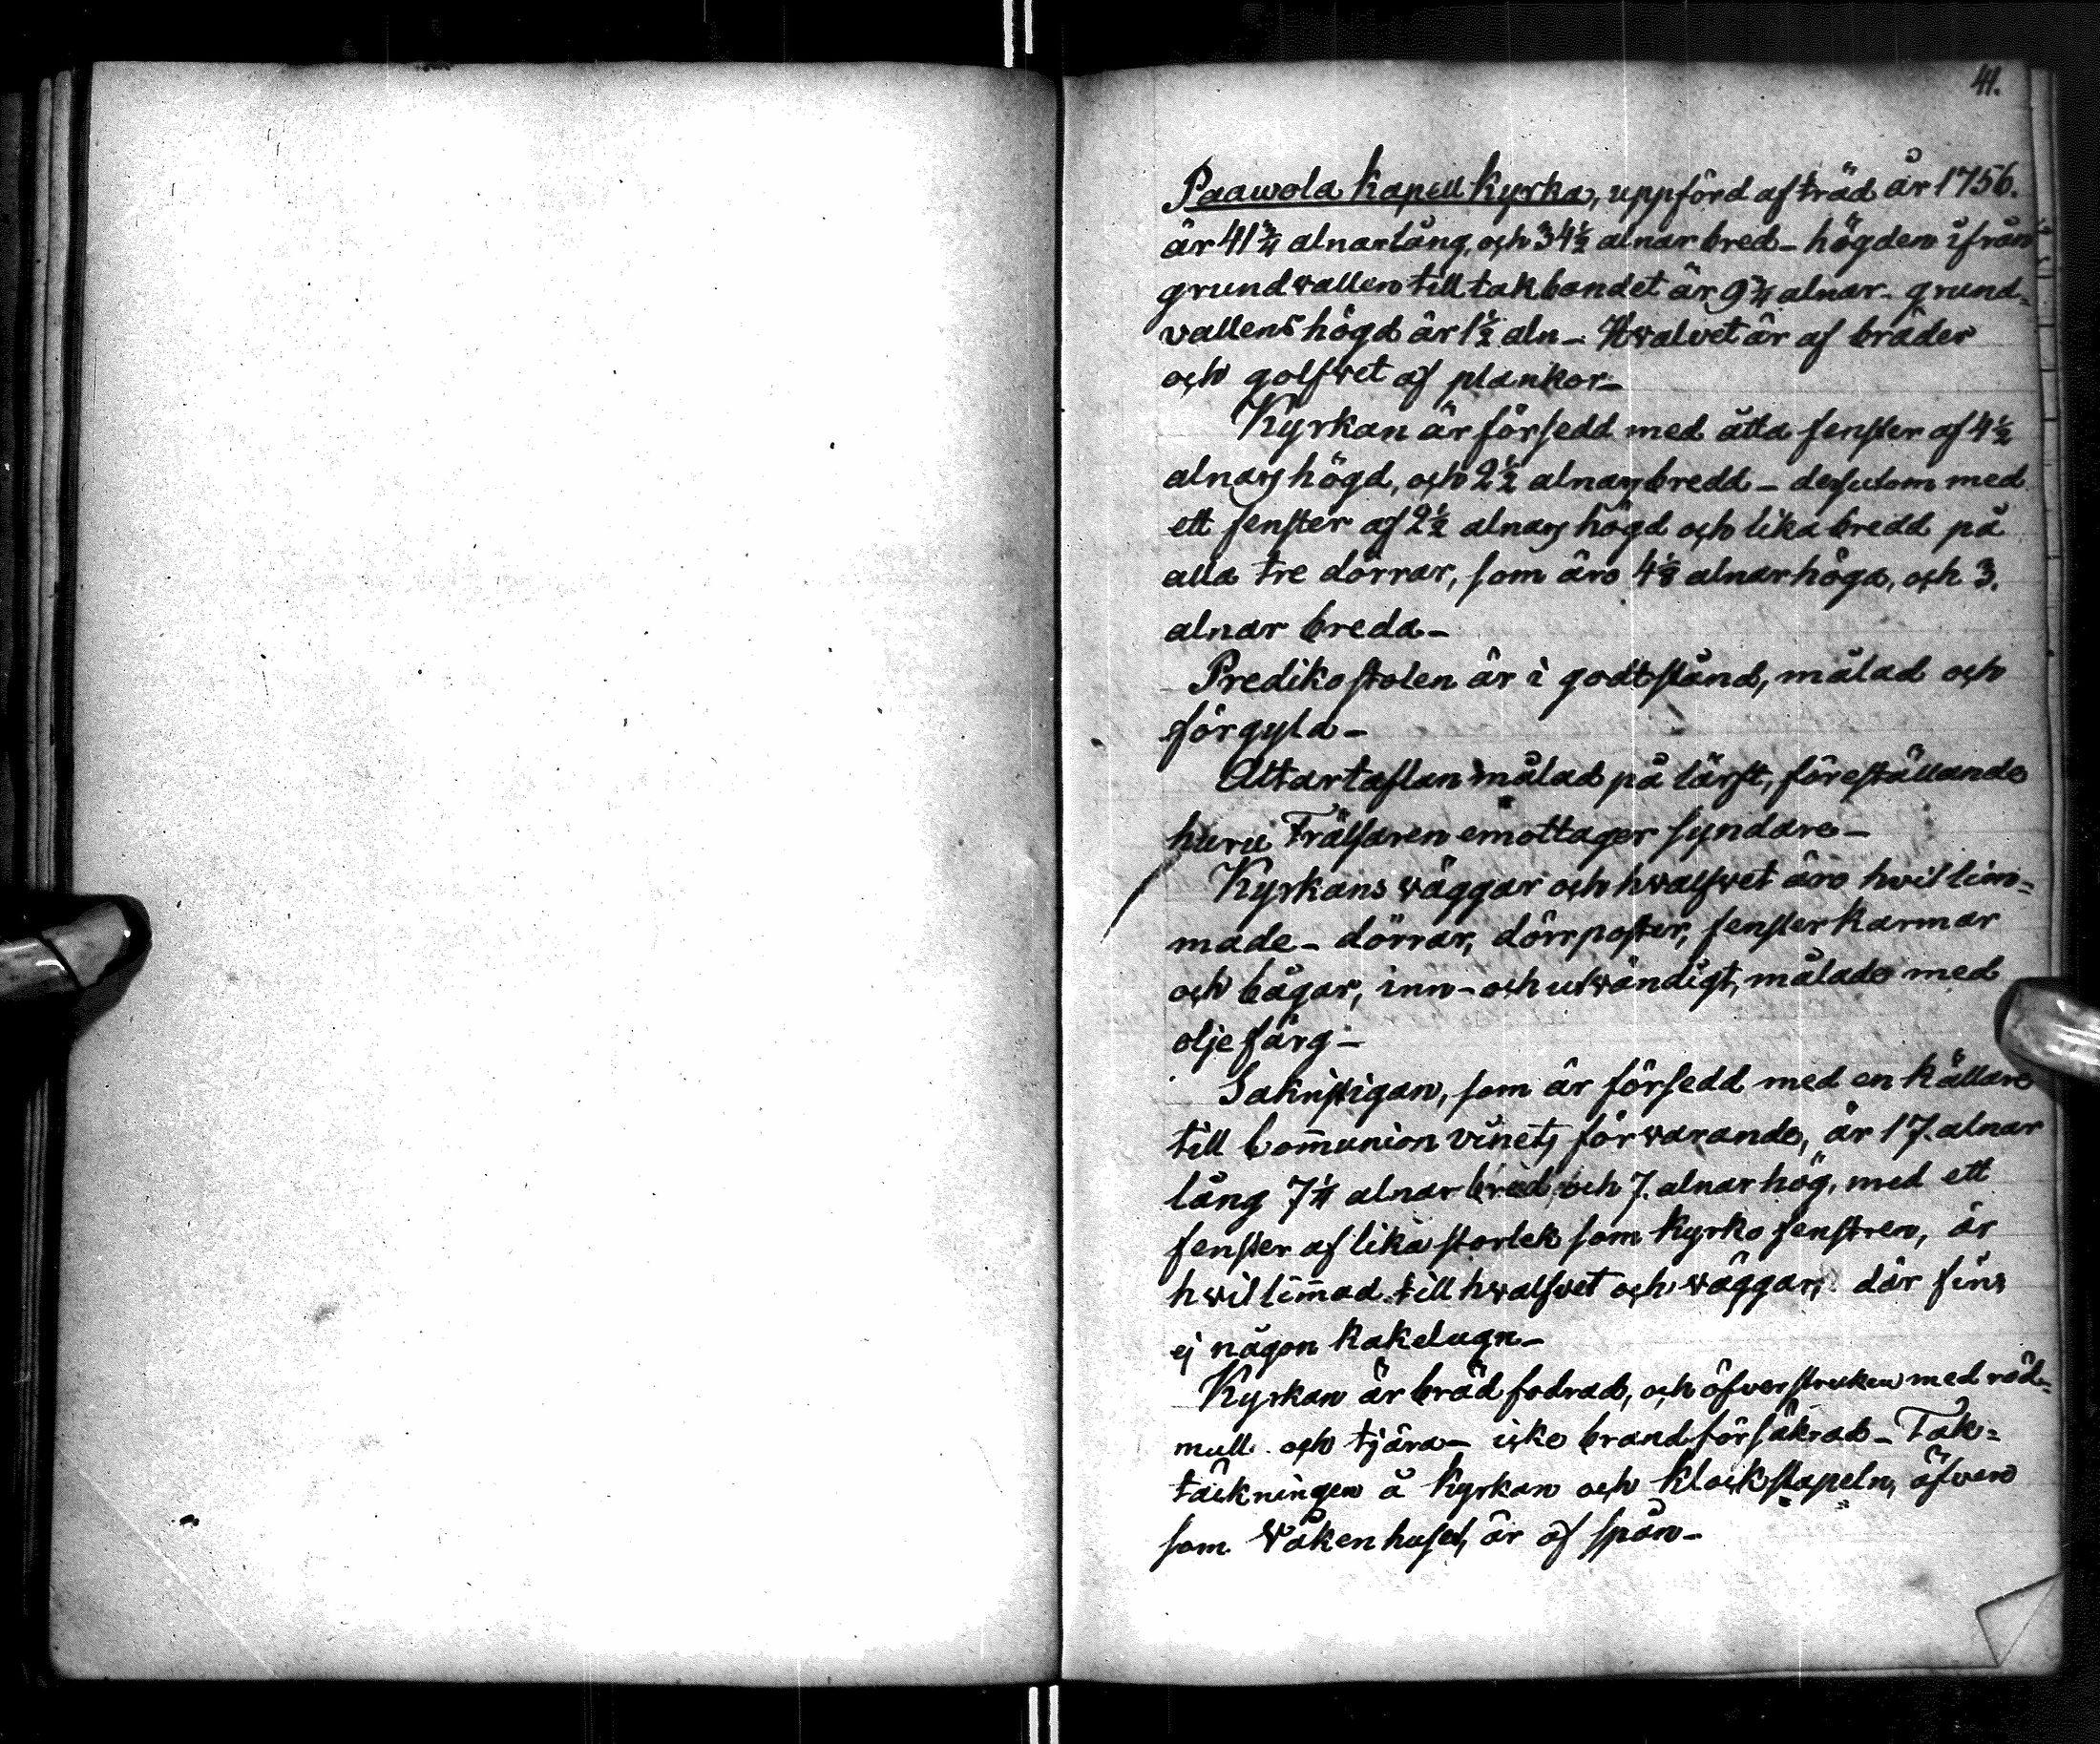 41.
Paawola Kapell Kyrka, uppförd af träd år 1756.
är 41 3/4 alnar lång, och 34 1/2 alnar bred – högden ifrån
grundvallen till takbandet är 9 3/4 alnar – grund=
vallens högd är 1 1/2 aln – Hvalvet är af bräder
och golfvet af plankor –
Kyrkan är försedd med åtta fenster af 4 1/2
alnars högd, och 2 1/2 alnars bredd – dessutom med
ett fenster af 2 1/2 alnars högd och lika bredd på
alla tre dörrar, som äro 4 1/8 alnar höga, och 3.
alnar breda –
Predikostolen är i godt stånd, målad och
förgyld –
Altartaflan målad på lärft, föreställande
huru Frälsaren emottager syndare –
Kyrkans väggar och hvalfvet äro hvitlim=
made – dörrar, dörrposter, fensterkarmar
och bågar, inn- och utvändigt, målade med
olje färg –
Sakristigan, som är försedd med en källare
till Communion vinets förvarande, är 17. alnar
lång 7 1/4 alnar bred och 7. alnar hög, med ett
fenster af lika storlek som Kyrko fenstren, är
hvitlimmad till hvalfvet och väggar, där fins
ej någon kakelugn –
Kyrkan är brädfodrad, och öfverstruken med röd=
mull och tjära – icke brandförsäkrad – Tak=
täckningen å Kyrkan och Klockstapeln, äfven
som Våkenhuset, är af spån –